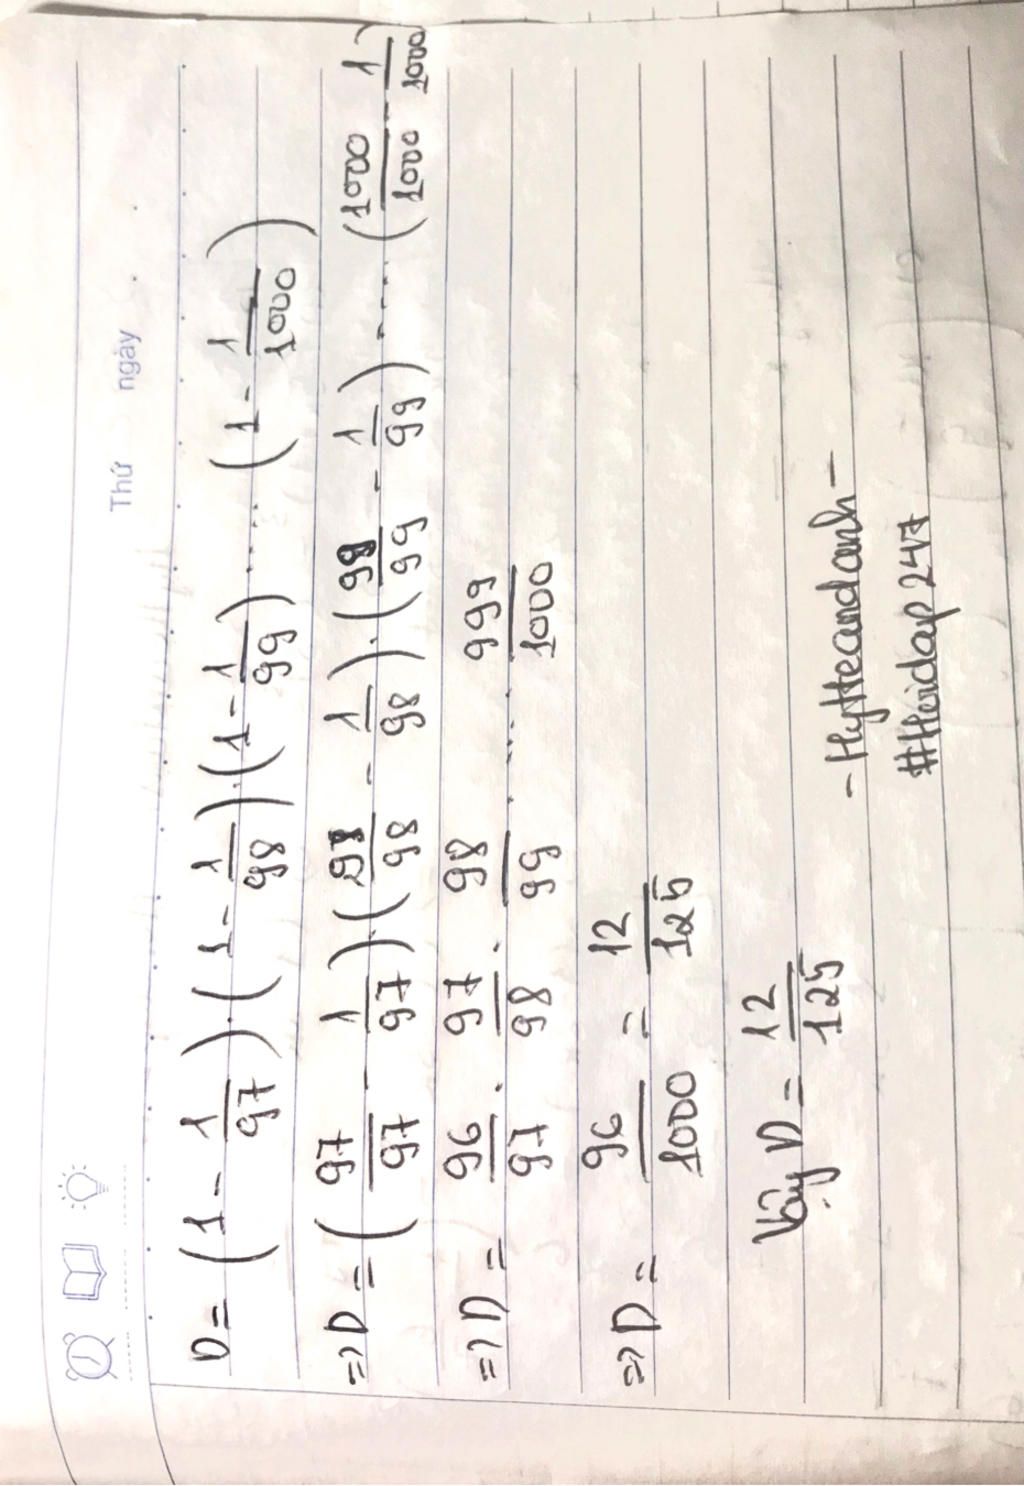 Thứ ngày
D = (1 - 1/97) . (1 - 1/98) . (1 - 1/99) ..... (1 - 1/1000)
=> D = (97/97 - 1/97) . (98/98 - 1/98) . (99/99 - 1/99) ..... (1000/1000 - 1/1000)
=> D = 96/97 . 97/98 . 98/99 ..... 999/1000
=> D = 96/1000 = 12/125
Vậy D = 12/125
- Hytteandanh -
#Hoidap247